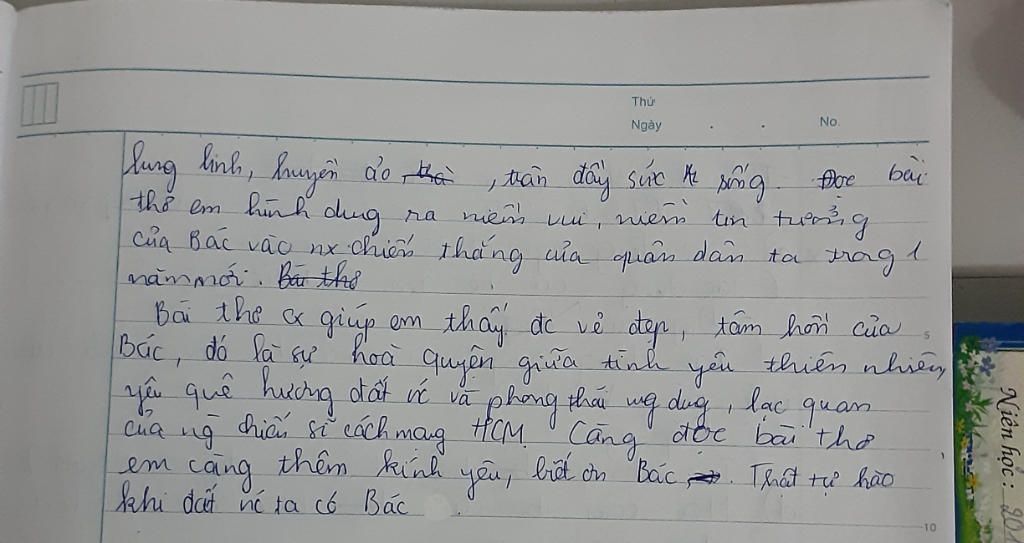 Thứ
Ngày . . No.
lung linh, huyền ảo, thà, tràn đầy sức số sống. Đọc bài
thơ em hình dung ra niềm vui, niềm tin tưởng
của Bác vào nx chiến thắng của quân dân ta trong 1
năm mới. Bài thơ
Bài thơ cx giúp em thấy đc vẻ đẹp, tâm hồn của
Bác, đó là sự hoà quyện giữa tình yêu thiên nhiên,
yêu quê hương đất nc và phong thái ung dung, lạc quan
của ng chiến sĩ cách mạng HCM. Càng đọc bài thơ
em càng thêm kính yêu, biết ơn Bác. Thật tự hào
khi đất nc ta có Bác.
10
Niên học : 201